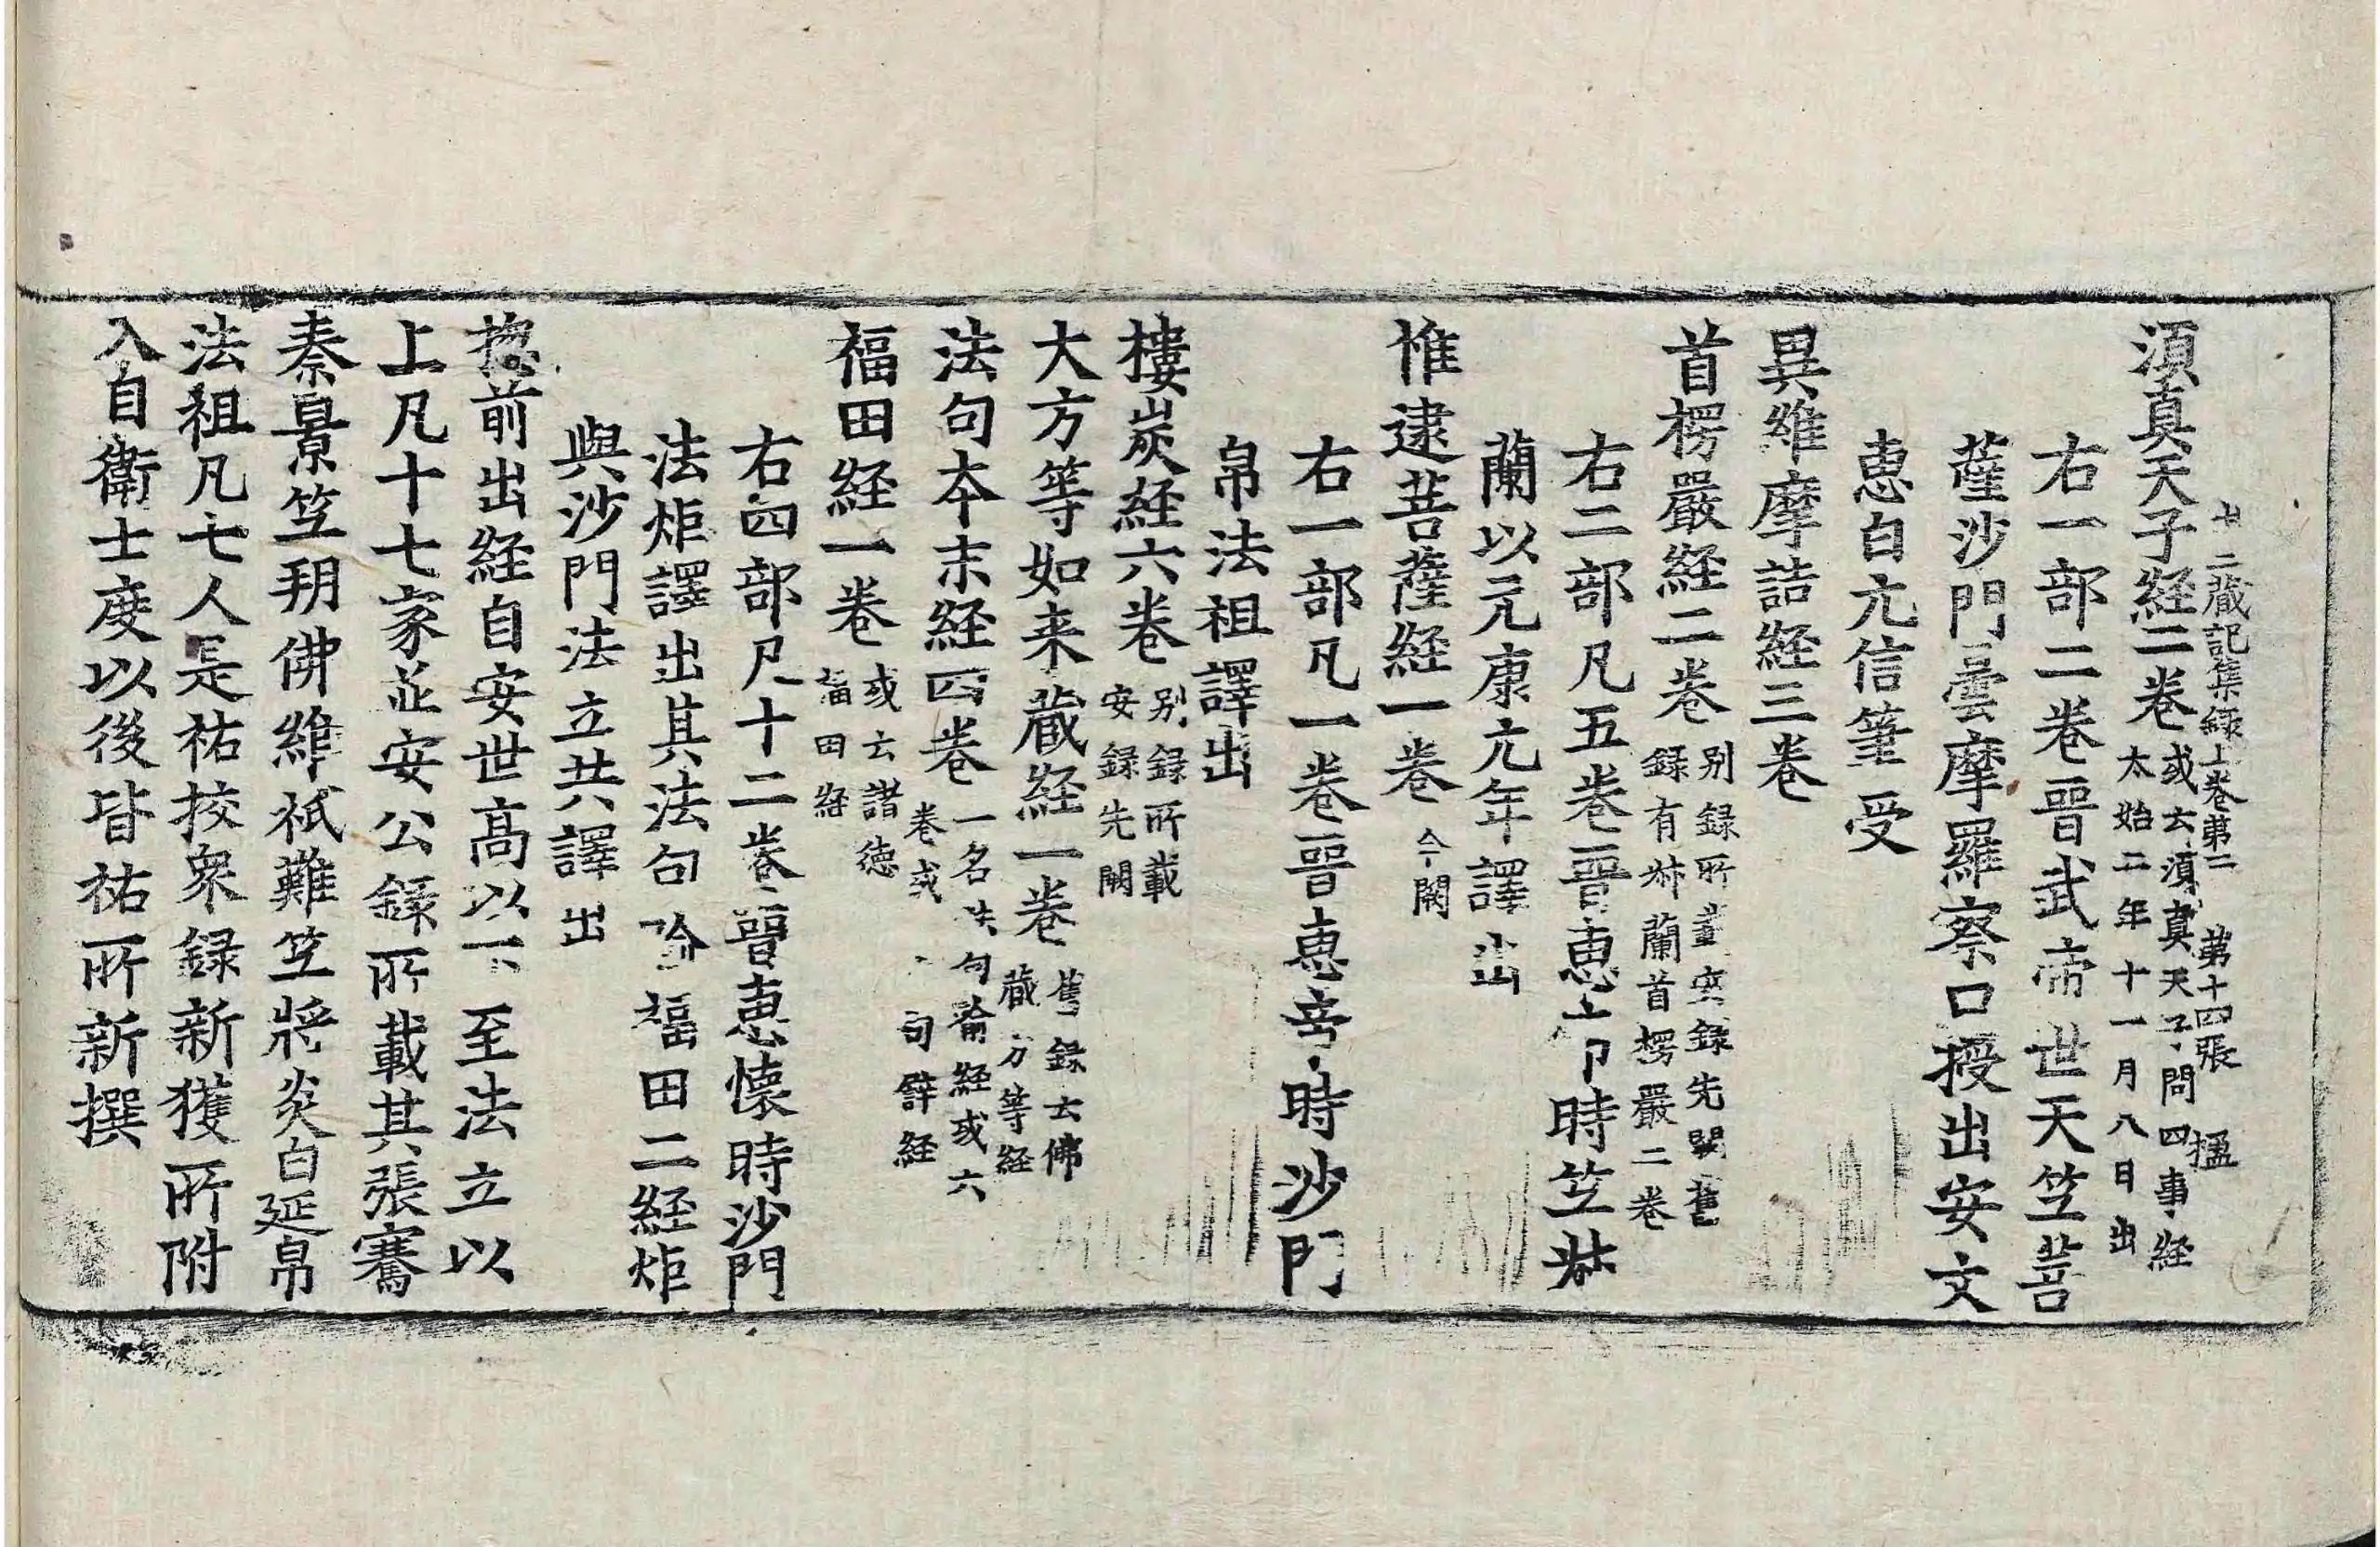 二藏記集録上巻第二　第十四張　楹
須真天子経二巻 或云須真天子問四事経
太始二年十一月八日出
右一部二巻晋武帝世天竺菩
薩沙門曇摩羅察口授出安文
恵白元信筆受
異維摩詰経三巻
首楞嚴経二巻 别録所載安録先闕舊
録有叔蘭首楞嚴二巻
右二部凡五巻晋恵 時竺叔
蘭以元康元年譯出
惟逮菩薩経一巻 今闕
右一部凡一巻晋恵帝時沙門
帛法祖譯出
樓炭経六巻 别録所載
安録先闕
大方等如来蔵経一巻 舊録云佛
蔵方等経
法句本末経四巻 一名法句喻経或六
巻或 句譬経
福田経一巻 或云諸徳
福田経
右四部凡十二巻晋恵懐時沙門
法炬譯出其法句喻福田二経炬
與沙門法立共譯出
揔前出経自安世高以下至法立以
上凡十七家並安公録所載其張騫
秦景竺朔佛維祇難竺將炎白延帛
法祖凡七人是祐挍衆録新獲所附
入自衛士度以後皆祐所新撰